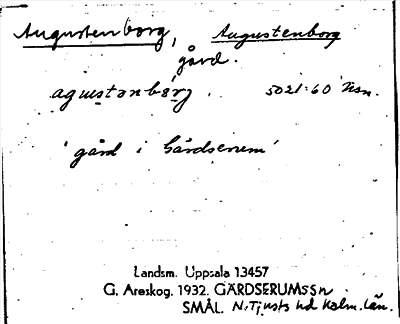 Augustenborg, Augustenborg
gård.
agustənbärj. 5021:60 Nsn.
'gård i Gärdserum'
Landsm. Uppsala 13457
G. Areskog. 1932. GÄRDSERUMSSN
SMÅL. N. Tjusts hd Kalm. län.